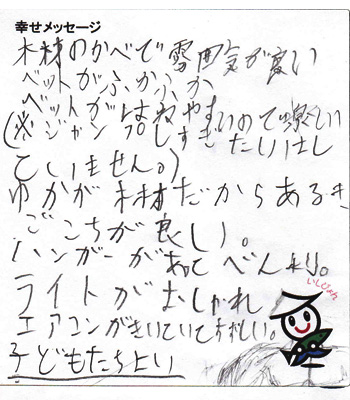 幸せメッセージ
木材のかべで雰囲気が良い
ベットがふかふか
ベットがはねやすいので楽しい
(※ジャンプしすぎたりはし
ていません。)
ゆかが木材だからあるき
ごこちが良い。
ハンガーがあってべんり。
ライトがおしゃれ
エアコンがきいていてすずしい。
子どもたちより